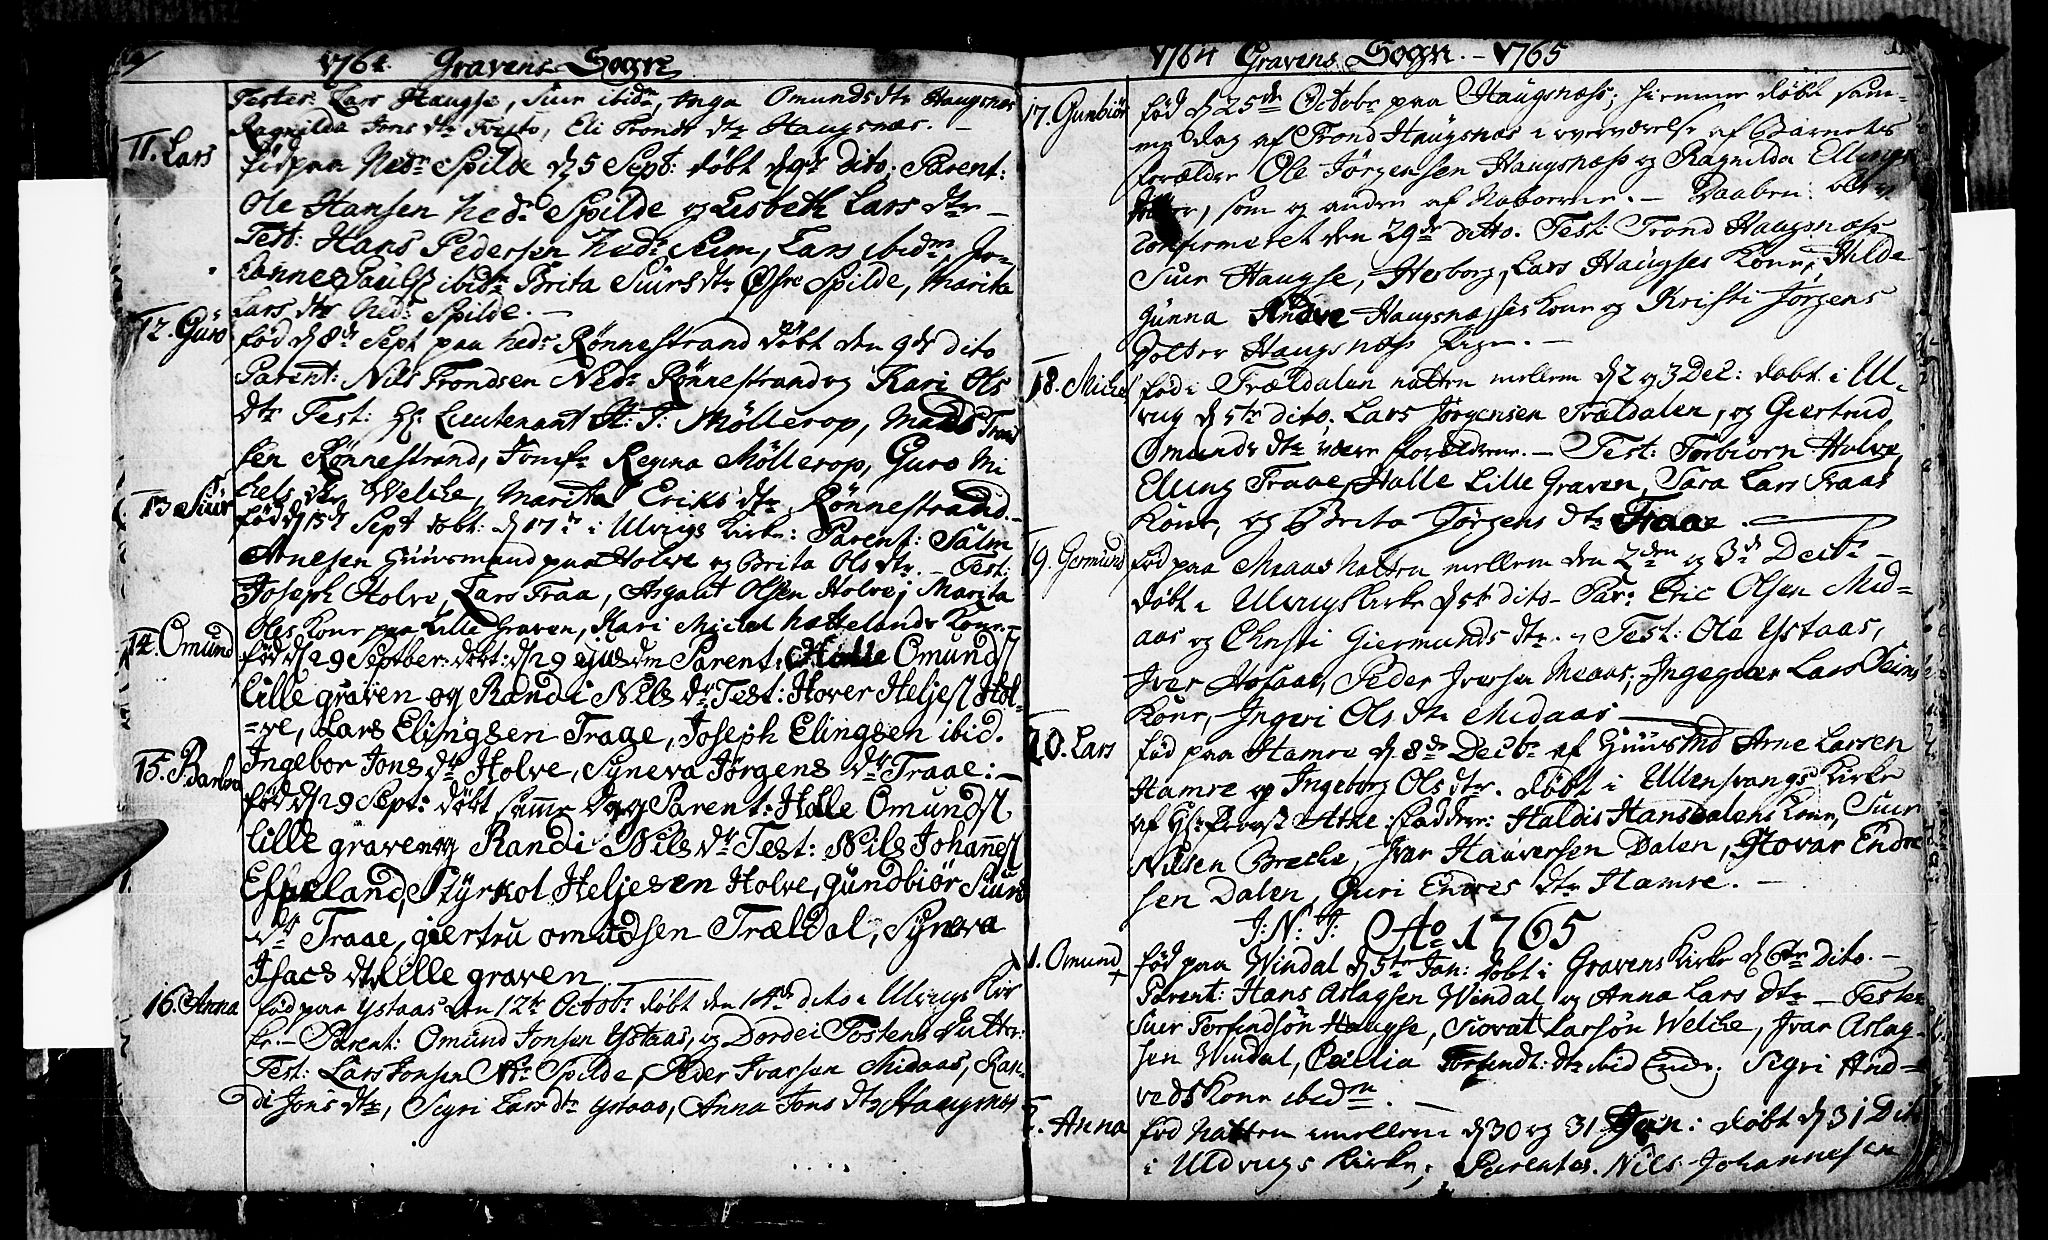 1764. Gravens Sogn
Tester: Lars Haugse, Siur ibidm, Inga Omundsdtr Haugsnæs
Ragnilda Jons dtr Tvisto, Eli Tronds dtr Haugsnæs. –
11. Lars
fød paa Nedr Spilde d 5 Sept: døbt d 9de dito; Parent:
Ole Hansen Nedr Spilde og Lisbeth Lars dtr –
Test: Hans Pedersen Nedr Seim, Lars ibidm, Jo-
hannes Pauls ibidm Brita Siursdtr Øfre Spilde, Marita
Lars dtr Nedr Spilde. –
12. Guro
fød d 8de Sept paa Nedr Rønnestrand døbt den 9de dito
Parent: Nils Trondsen Nedr Rønnestrand og Kari Ols
dtr Test: Hr Lieutenant H: T: Möllerop, Mads Trond
sen Rønnestrand, Jomfr Regina Möllerop, Guro Mi
chels dtr Welche, Marita Eriks dtr Rønnestrand. –
13 Siur
fød d 15de Sept døbt: d 17de i Ulvigs Kirke: Parent: Salm
Arnesen Huusmand paa Holve og Brita Ols dtr. – Test:
Joseph Holve, Lars Traa, Asgaut Olsen Holve; Marita
Ols Kone paa Lille Graven, Kari Michel Hattelands Kone –
14. Omund
fød d 29 Septber: døbt: d 29 ejusdm Parent: Halle Omunds
lille graven og Randi Nils dtr Test: Hover Heljes Hol-
=ve, Lars Elingsen Traae, Joseph Elingsen ibid.
Ingebor Jons dtr Holve, Syneva Jørgens dtr Traae: –
15. Barbra
fød d 29 Sept: døbt samme dag Parent: Halle Omunds
lille graven og Randi Nils dtr Test: Nils Johannes
Espeland, Styrkol Heljesen Holve, gundbiör Siurs
dtr Traae, giertru omudsen Trældal, Syneva
Isacs dtr lille graven
16. Anna
fød paa Ystaas den 12te Octobr døbt den 14de dito i Ulvigs Kir
ke – Parent: Omund Jonsen Ystaas, og Dordei Tostens Dutter:
Test: Lars Jonsen Nr Spilde, Peder Ivarsen Midaas, Ran-
di Jons dtr, Sigri Lars dtr Ystaas, Anna Jons dtr Haugsnes
1764 Gravens Sogn. – 1765
17. Gunbiör
fød d 25de Octobr paa Haugsnæss; hiemme døbt sam-
me dag af Trond Haugsnæs i overværelse af Barnets
forældre Ole Jörgensen Haugsnæss og Ragnilda Ellings
dotter, som og andre af Naboerne. – Daaben blev
confirmeret den 29de ditto. Test: Trond Haugsnæss
Siur Haugse, Herborg, Lars Haugses Kone, Hilde
Gunna Andve Haugsnæsses Kone og Kristi Jörgens
dotter Haugsnæss Pige. –
18. Michel
fød i Trældalen natten mellem d 2 og 3 Dec: døbt i Ul-
vig d 5te dito; Lars Jørgensen Trældalen, og Giertrud
Omunds dtr vare forældrene. – Test: Torbiörn Holve,
Elling Traae, Halle Lille Graven, Tara Lars Traas
Kone, og Brita Jörgens dtr Traae.
19. Germund
fød paa Meaas natten mellem den 2den og 3de Decbr –
døbt i Ulvigs Kirke d 5te dito – Par: Eric Olsen Mid-
aas og Christi Giermunds dtr. – Test: Ole Ystaas,
Iver Hofaas, Peder Iversen Meaas; Ingegier Lars Seims
Kone, Ingeri Ols dtr Midaas –
20. Lars
fød paa Hamre d 8de Decbr af Huusmd Arne Larsen
Hamre og Ingeborg Ols dtr. døbt i Ullensvangs Kirke
af Hr: Provst Atke. Faddere: Haldis Hans Dalens Kone, Siur
Nilsen Breche, Ivar Hauversen Dalen, Hovar Endre
sen Dalen, Guri Endres dtr Hamre. –
J: N: J: Ao 1765
1. Omund
fød paa Windal d 5te Jan: døbt i Gravens Kirke d 6te dito. –
Parent: Hans Aslagsen Windal og Anna Lars dtr – Tester
Siur Torfindsön Haugse, Siovat Larsön Welche, Ivar Aslag-
sen Windal, Cecilia Torfindt: dtr ibid Endr; Sigri And-
veds Kone ibidm. –
2. Anna
fød Natten imellem d 30 og 31 Jan: døbt d 31 Dito
i Uldvigs Kirke; Parentes. Nils Johannesen